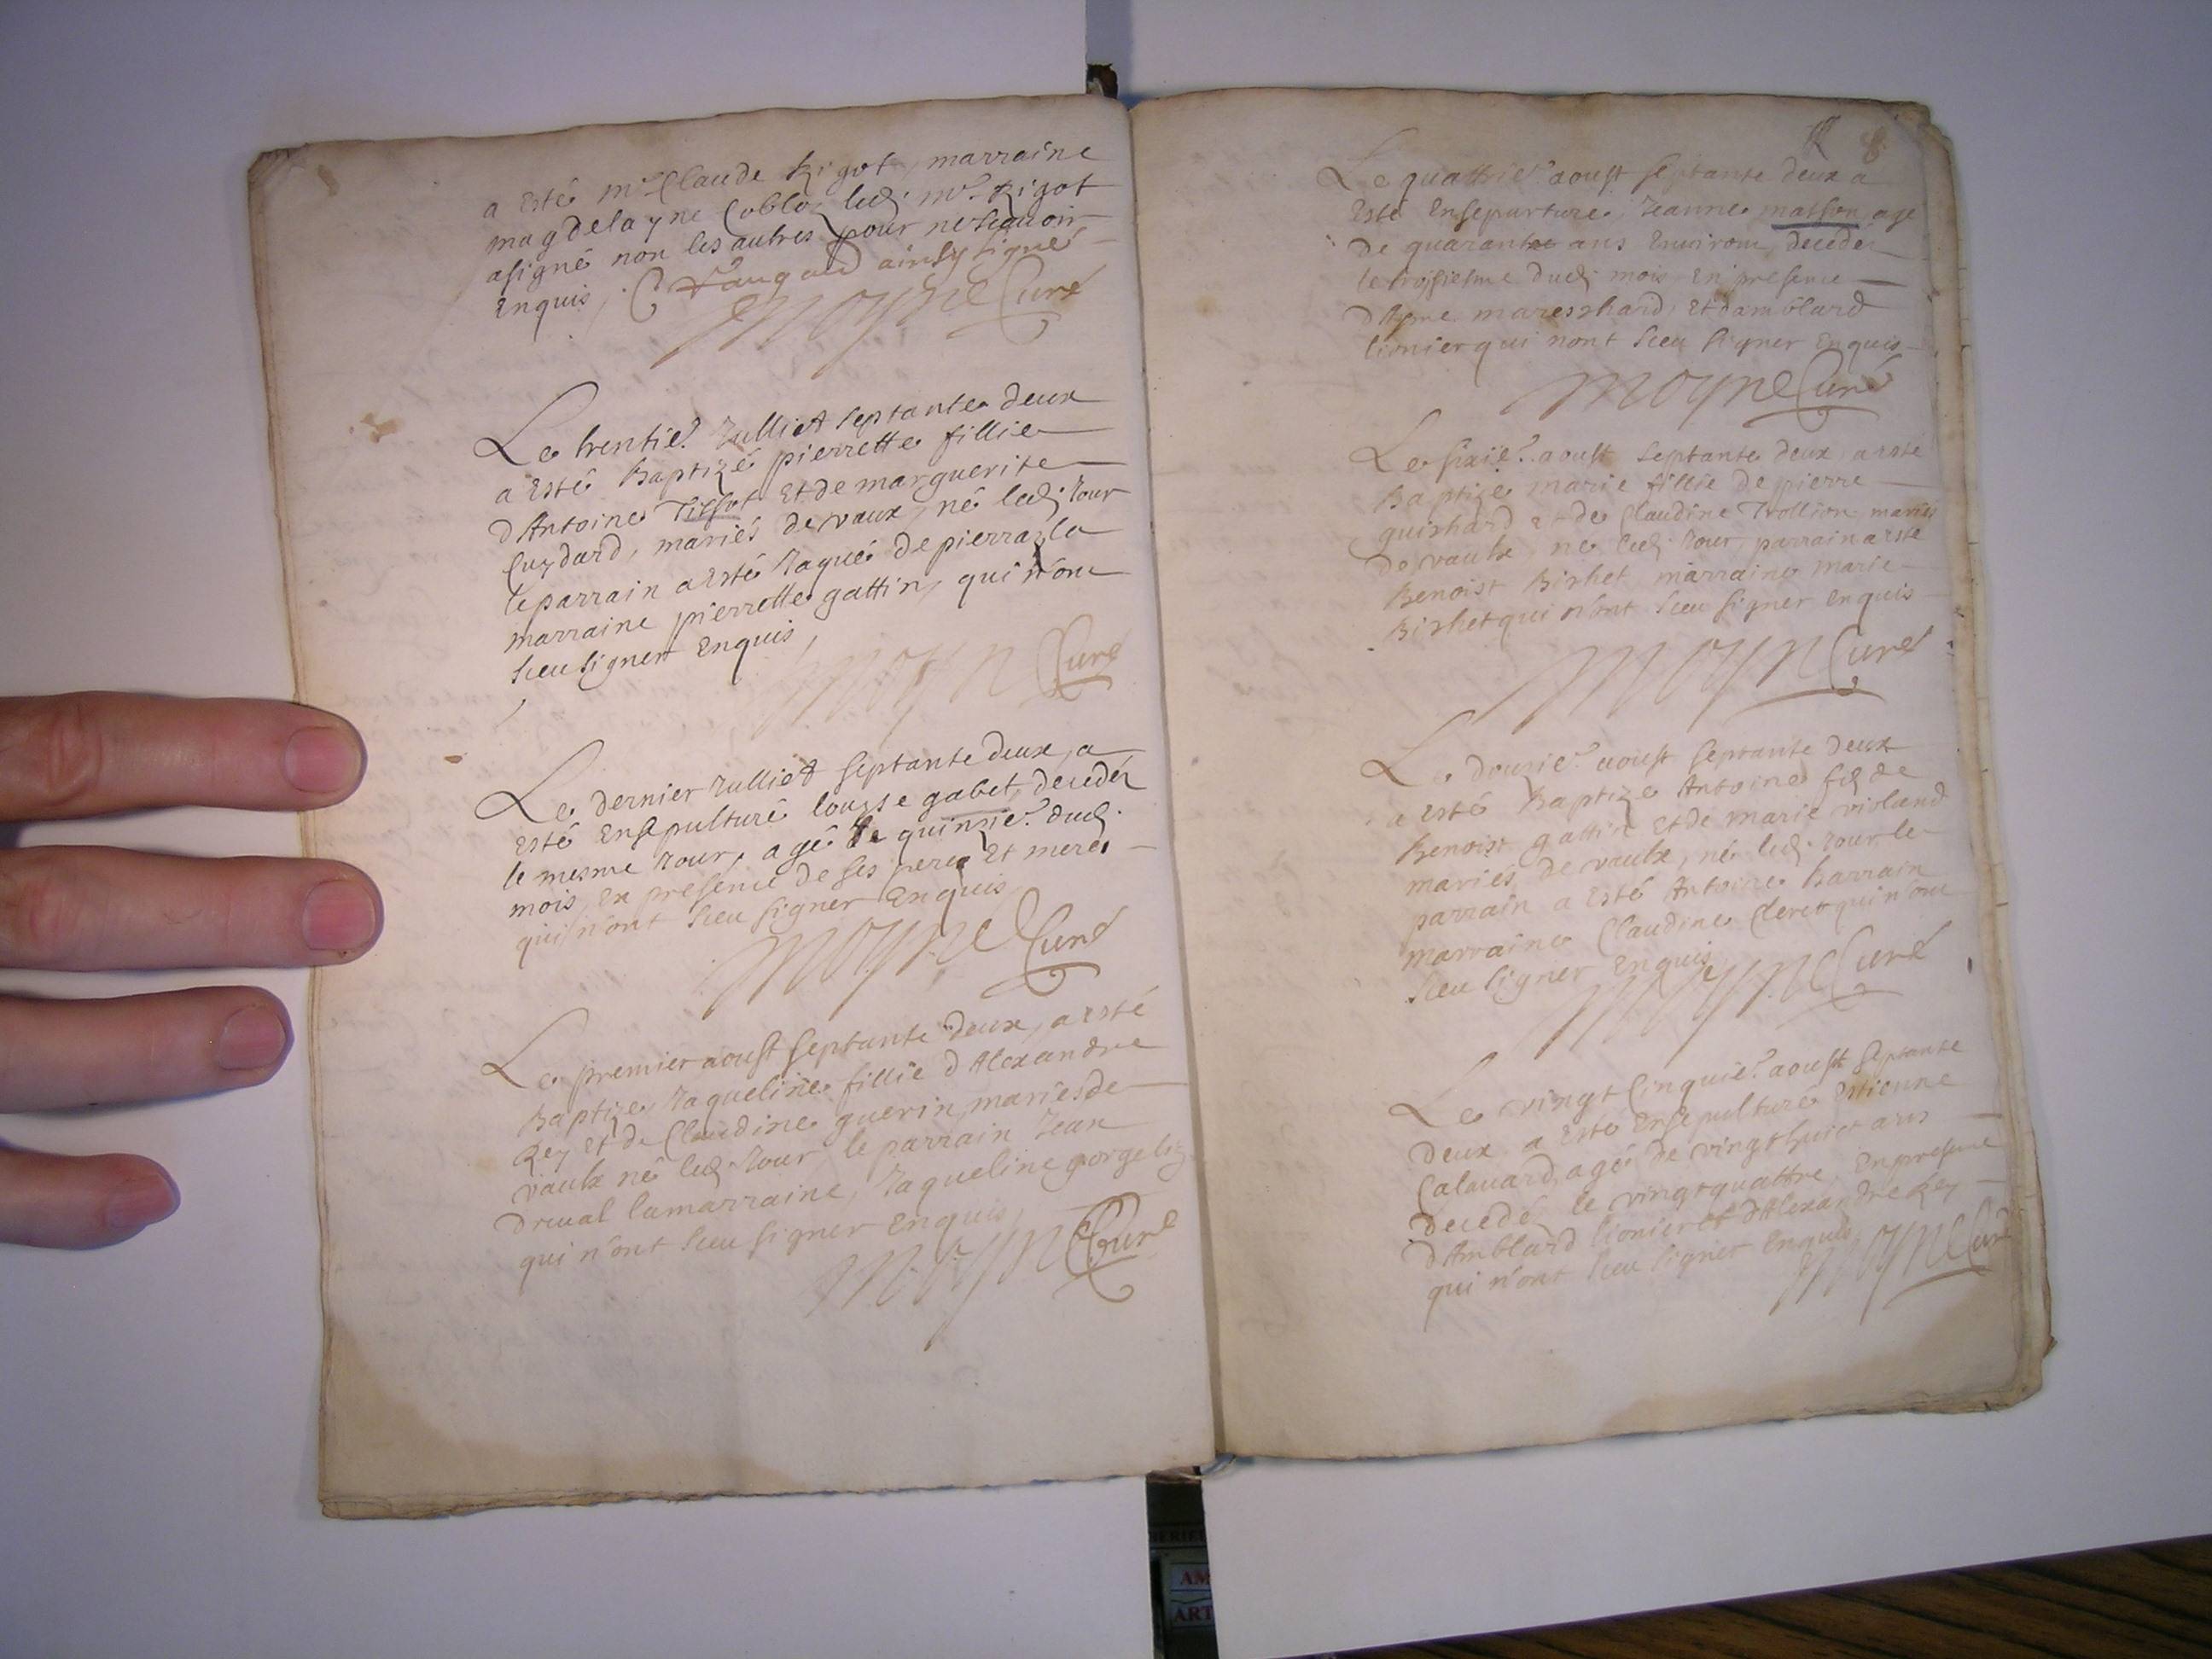 a esté mre Claude Rigot, marraine
magdelayne Cobloz, led. mre Rigot
asigné non les autres pour ne scauoir
enquis, ainsy signé
Moyne Curé
Le trentie. Julliet septante deux
a esté Baptizé pierrette fillie
d'Antoine Tissot et de marguerite
Cuzdard, mariés de vaux, né led. Jour
le parrain a esté Jaqué de pierraz la
marraine pierrette gattin, qui n'ont
sceu signer enquis,
Moyn Curé
Le dernier Julliet septante deux, a
esté ensepulturé louyse gabet decedéz
le mesme Jour, agé de quinzie. dud.
mois, en presence de ses pere et mere
qui n'ont sceu signer enquis
Moyne Curé
Le premier aoust septante deux, a esté
Baptize, Jaqueline fillie d'Alexandre
Rey et de Claudine guerin, mariés de
vaulx né led. Jour, le parrain Jean
dreual la marraine, Jaqueline gorgeliz
qui n'ont sceu signer enquis,
Moyn Curé
8
Le quattrie. aoust septante deux a
esté Ensepurture, Jeanne matton, age
de quarante ans Environ, decedéz
le troisiesme dud. mois, en presence
mareschard, et damblard
lionier qui nont sceu signer enquis
Moyne Curé
Le sixie. aoust septante deux, a esté
Baptize marie fillie de pierre
guishard et de Claudine Trollion mariés
de vaulx, né led. Jour, parrain a esté
Benoist Bishet, marraine marie
Bishet qui n'ont sceu signer enquis
Moyn Curé
Le douzie. aoust septante deux
a esté Baptize Antoine fils de
Benoist gattin et de marie violand
mariés de vaulx, né led. Jour le
parrain a esté Antoine Barrain
marraine Claudine Clerct qui n'ont
sceu signer enquis
Moyne Curé
Le vingt Cinquie. aoust septante
deux a esté ensepulturé Estienne
Calouard, agé de vingt huict ans
decedé le vingt quattre, en presence
d'Amblard lionier et d'Alexandre Rey
qui n'ont sceu signer enquis
Moyne Curé
AM
ART